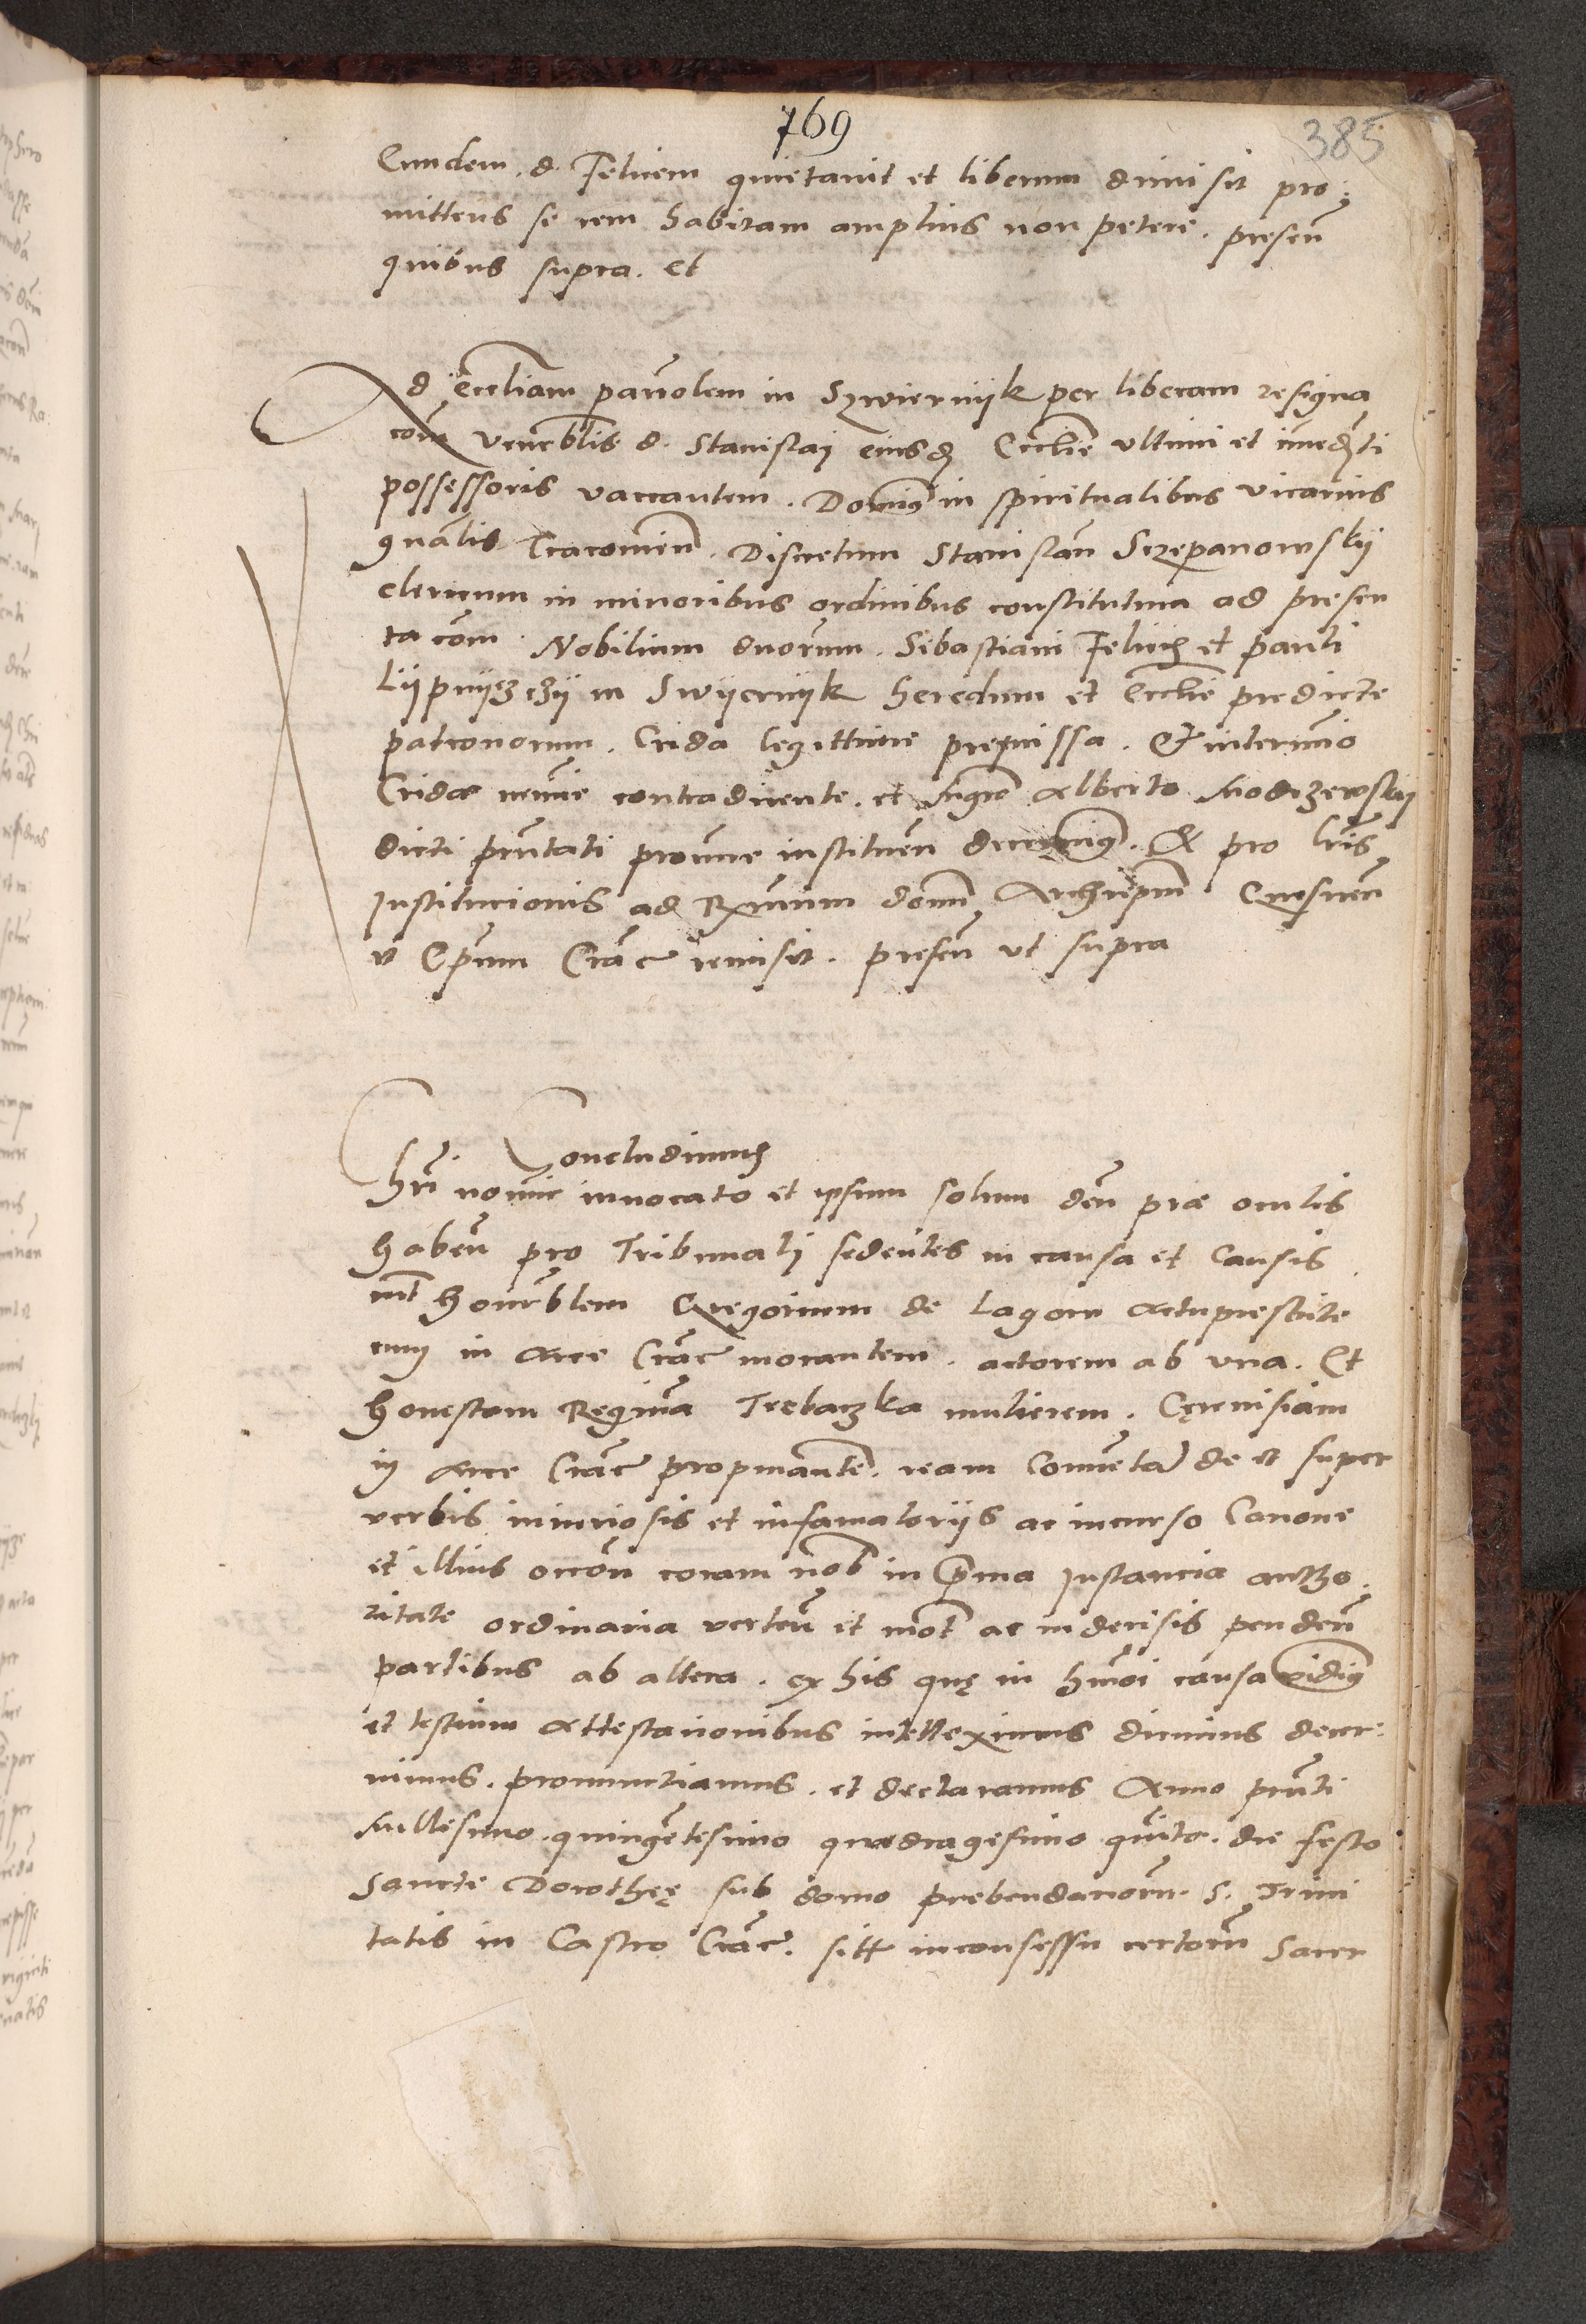 769
385
Eundem d. Felicem quietavit et liberum dimisit pro
mittens se rem habitam amplius non petere. presen
quibus supra. et
Ad eccliam parrolem in Szwiernyk per liberam resigna
com venerblis d. Stanislaj eiusd Ecclie ultimi et immediti
possessoris vaccantem. Dominus in spiritualibus vicarius
gnalis Cracovien. Discretum Stanislau Sczepanowskij
clericum in minoribus ordinibus constitutum ad presen
tacom Nobilium duorum. Sebastiani Felicis et pauli
Lijpnijczij in Swijernijk heredum et Ecclie predicte
patronorum. Crida legittime premissa. Et in termino
Cridae nemine contradicente. et Mgro Alberto Modrzewskij
dicti prntati procure instituen decrevimus. Et pro lris
Institucionis ad Rmum domm Archiepm Gnesnen
et Epum Crac remisit. presen ut supra
Concludimus
Chri nomine invocato et ipsum solum deum prae oculis
haben pro Tribunali sedentes in causa et causis
int honorblem Gregorium de Lagow Altipresbite
rum in Arce Crac morantem. actorem ab una. Et
honestam Reginam Trebaczka mulierem. Cerevisiam
in Arce Crac propinantem. ream Conventa de et super
verbis iniuriosis et infamatoriis ac incurso Canone
et illius occon coram nob in prima Instancia autho
ritate ordinaria verten et mot ac indecisis penden
partibus ab altera. ex his quę in hmoi causa vidimus
et testium attestationibus intelleximus dicimus decer
nimus. pronunctiamus. et declaramus Anno prnti
Millesimo quingentesimo quadragesimo quinto. die festo
Sancte Dorotheę sub domo prebendariorum S. Trini
tatis in Castro Crac. sitt in consessu certorum Sacer